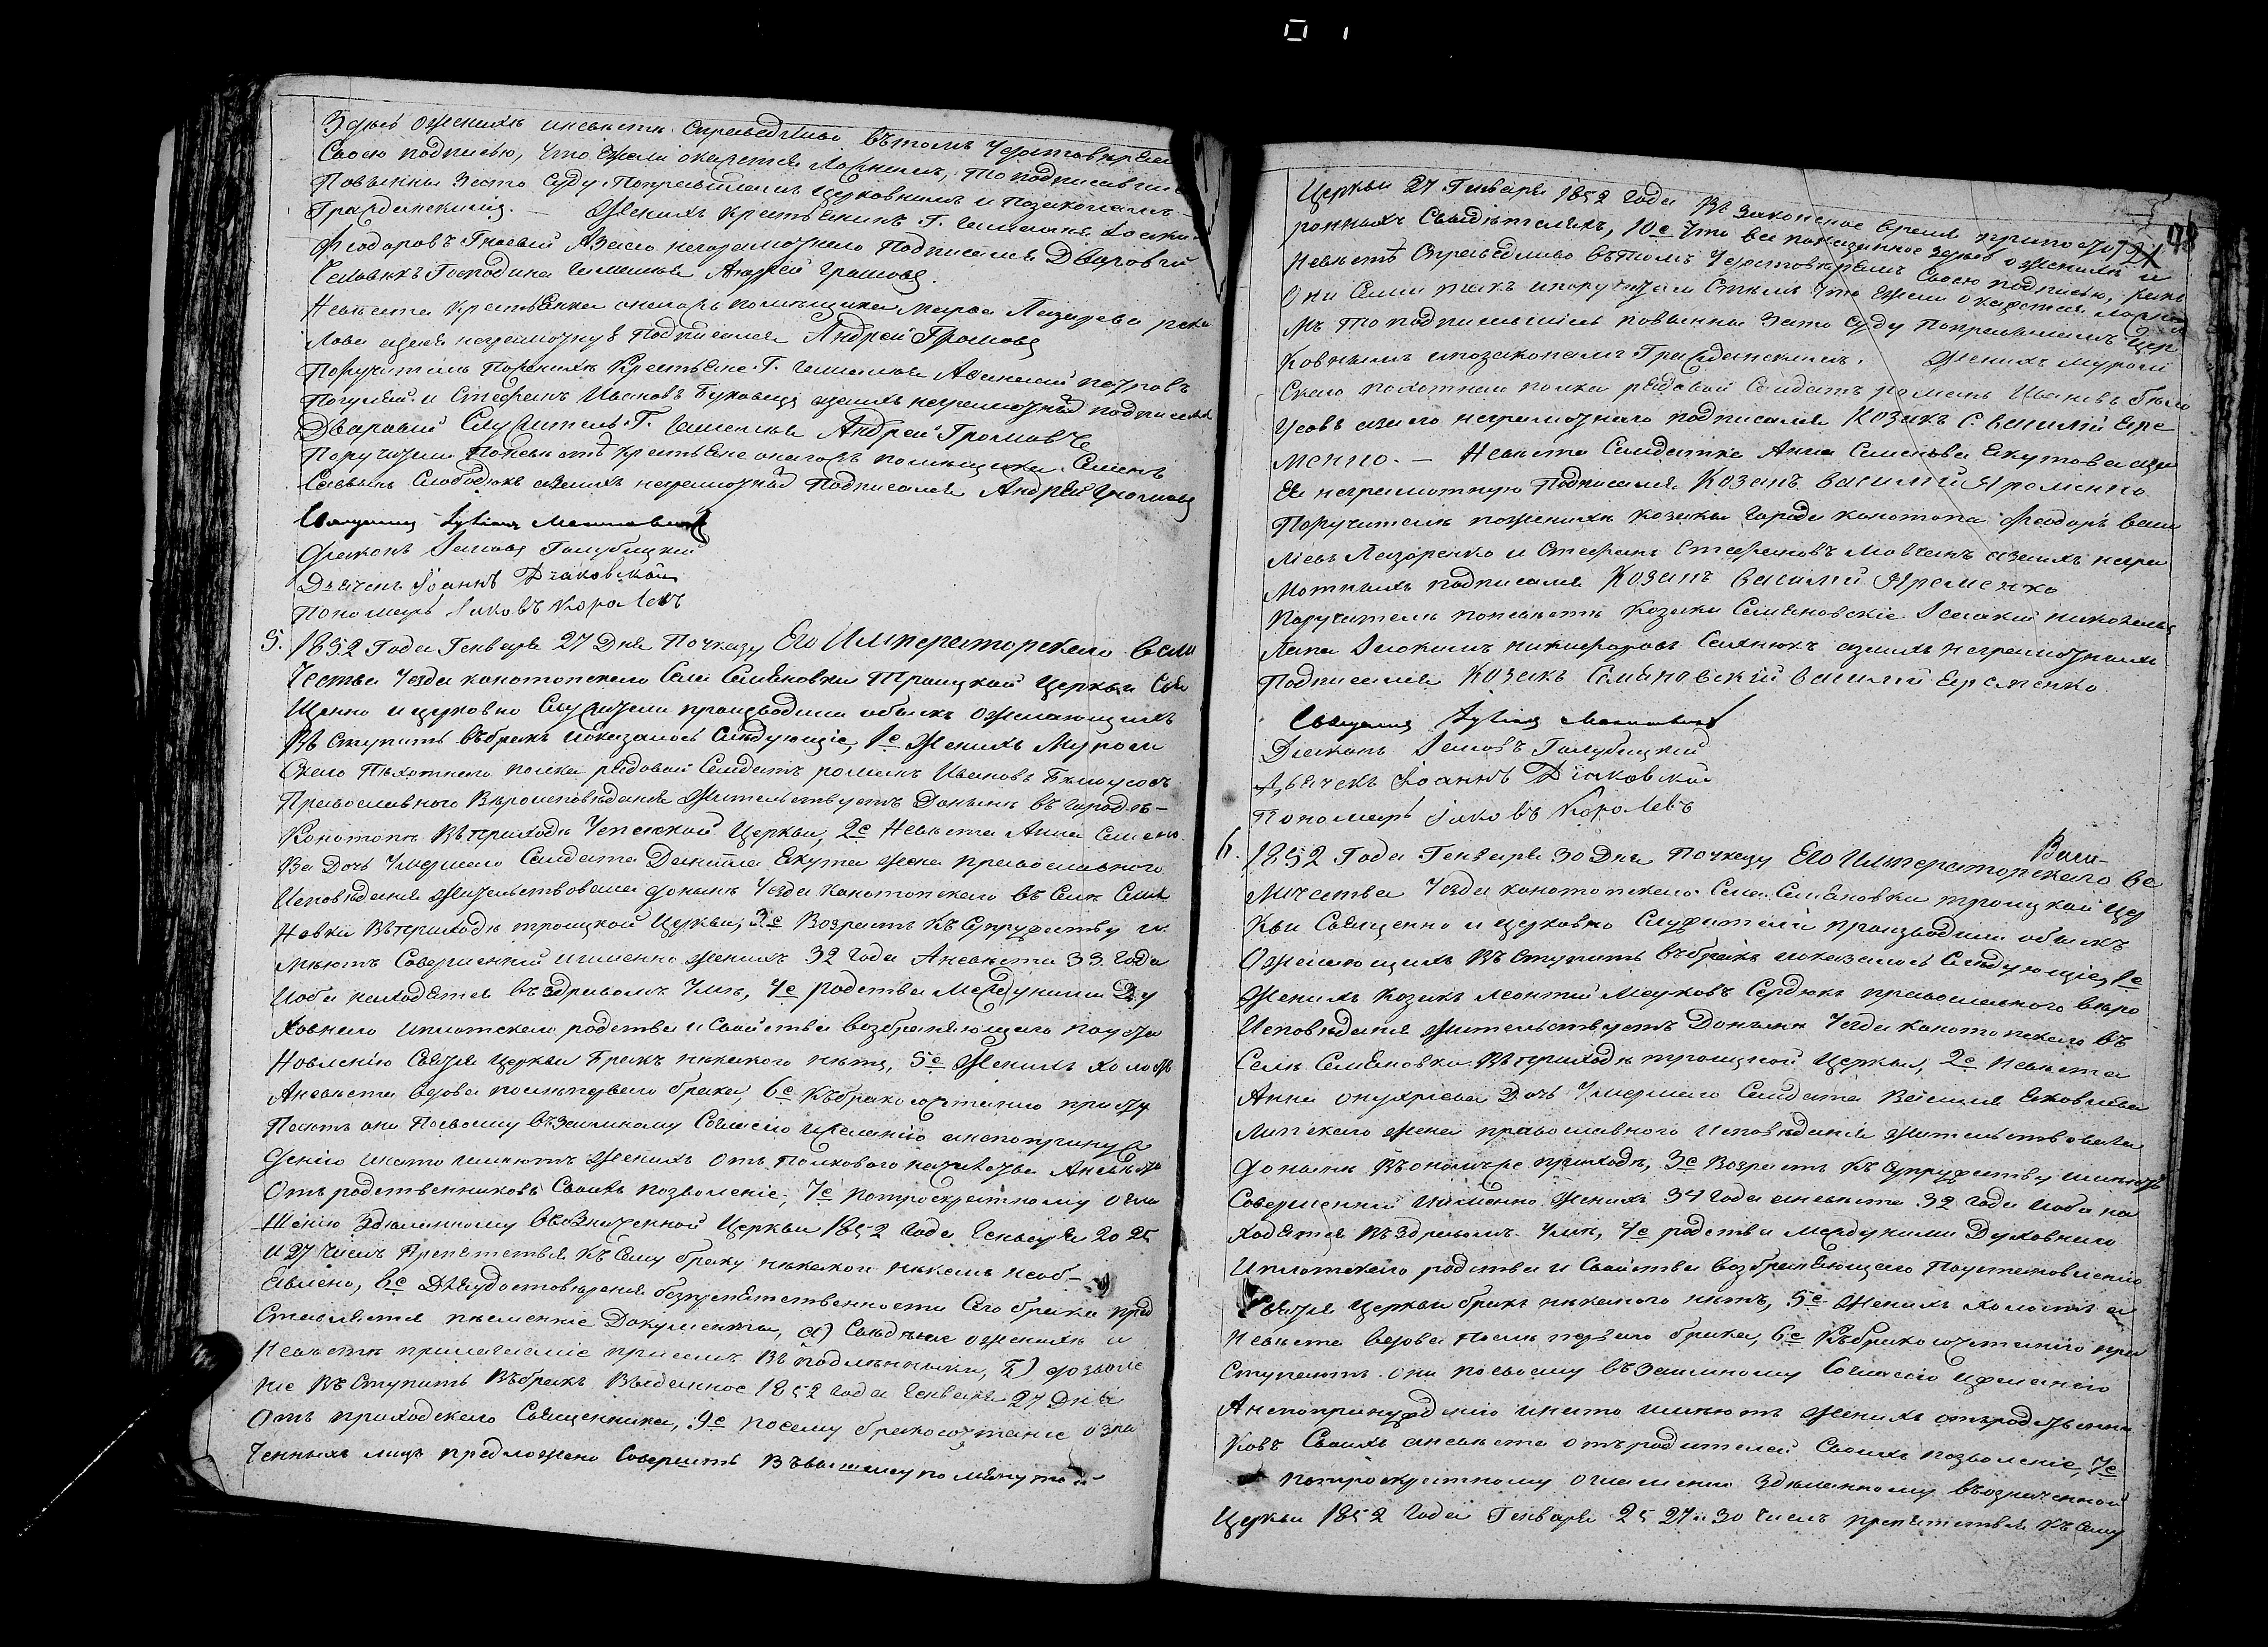 Здѣсь оженихѣ иневѣстѣ справедливо вътомъ удостовѣряем
Своею подписью, что ежели окажется ложнымъ, то подписавшіе
Повынны зато суду поправиламъ церковнымъ и позаконамъ
Гражданскимъ. — Женихъ крестьянинъ Г.
Ѳеодоровъ азаего неграмотнаго подписался Дворовій
Человѣкъ Господина Андрей Громовъ.
Невѣста крестьянка оногожъ помѣщика Марѳа Лазарева
азаея неграмотную подписался Андрей Громовъ
Поручители поженихѣ крестьяне Г. Аѳанасій Петровъ
и Стефанъ Ивановъ Буковецъ азаихъ неграмотныхъ подписался
Дворовій Служитель Г. Андрей Громовъ
Поручители поневѣстѣ крестьяне оногожъ помѣщика Семенъ
Слободюкъ азаихъ неграмотныхъ подписался Андрей Громовъ
Священникъ
Діаконъ Іаковъ Голубицкій
Дьячекъ Іоаннъ Діаковскій
Пономарь Іаковъ Королевъ
5. 1852 Года Генваря 27 Дня Поуказу Его Императорскаго Вели
чества уезда конотопскаго Села Семяновки Троицкой Церкви Свя
щенно ицерковно служители производили обыскъ ожелающихъ
Въступить въбракъ иоказалось слѣдующіе, 1е Женихъ Муром
скаго Пѣхотнаго полка рядовой Солдатъ романъ Ивановъ Бѣлоусовъ
Православного Вѣроисповѣданія жительствуетъ Донынѣ въ городѣ
Конотопѣ Въприходѣ Успенской Церкви, 2е Невѣста Анна Семено
ва Дочь умершаго Солдата Данiила Якута жена православного
Исповѣданія жительствовала донынѣ уезда Конотопскаго въ Селѣ Семя
новки Въприходѣ троицкой Церкви, 3е Возрастъ къ супружеству и
мѣютъ Совершенній иименно женихъ 32 года Аневѣста 33. года
Иоба находятся въздравомъ умѣ, 4е родства между ними Ду
ховнаго иплотскаго родства и Свойства возбраняющаго поуста
новленію Святія Церкви Бракъ никакого нѣтъ, 5е Женихъ холостъ
Аневѣста вдова послѣпервого брака, 6е Къбракосочетанію присту
паютъ они посвоему взаимному Согласію ижеланію анепопринуж
денію инато имѣютъ Женихъ отъ полковаго начальства Аневѣста
Отъ родственниковъ Своихъ позволеніе, 7е потроекратному огла
шенію здѣланному въозначенной Церкви 1852 года Генваря 20 25
И 27 числъ Препятствія къ сему браку никакого никѣмъ необ-
явлено, 8е Дляудостовѣренія безпрепятственности сего брака пред
ставляются писменніе Документы, а) Свѣдѣніе оженихѣ и
невѣстѣ прилагаемiе присемъ Въподлинники, Б) дозволе
ніе Въступить Въбракъ выданное 1852 года Генваря 27 Дня
Отъ приходскаго Священника, 9е посему бракосочетаніе озна
ченныхъ лицъ предложено Совершить Въвышеупомянутой
98
Церкви 27 Генваря 1852 года Въ законное время припосто
ронныхъ Свидѣтеляхъ, 10е Что все показанное здѣсь оженихѣ и
невѣстѣ Справедливо вътомъ удостовѣряемъ Своею подписью, какъ
Они Сами такъ ипоручители Стѣмъ что ежели окажется ложны
мъ то подписавшіесь повынны зато суду поправиламъ Цер
ковнымъ ипозаконамъ Гражданскимъ. Женихъ муром
скаго пѣхотнаго полка рядовой Солдатъ романъ Ивановъ Бѣло
усовъ азаего неграмотнаго подписался Козакъ С. василій Яре
менко. — Невѣста Солдатка Анна Семенова Якутова аза
ея неграмотную Подписался Козакъ василій Яременко
Поручители поженихѣ козаки города конотопа Ѳеодоръ васи
ліевъ Лазоренко и Стефанъ Стефановъ Мовчанъ азаихъ негра
мотныхъ подписался Козакъ василій Яременко
Поручители поневѣстѣ козаки Семяновскіе Іоакимъ никифоровъ Сахнюкъ азаихъ неграмотныхъ
Подписался Козакъ Семяновскій василій Еременко.
Священникъ
Діаконъ Іаковъ Голубицкій
Дьячекъ Іоаннъ Діаковскій
Пономарь Іаковъ Королевъ
6. 1852 Года Генваря 30 Дня Поуказу Его Императорскаго Ве
личества уезда конотопскаго Села Семяновки троицкой цер
кви Священно и церковно служители производили обыскъ
Ожелающихъ Въступить Въбракъ иоказалось Слѣдующіе, 1е
Женихъ козакъ леонтій Сердюкъ православного вѣро
исповѣданія жительствуетъ Донынѣ уезда конотопскаго въ
Селѣ Семяновки Въприходѣ троицкой церкви, 2е Невѣста
Анна онуфріева Дочь умершаго Солдата Василія Яковлева
Липскаго жена православного исповѣданія жительствовала
донынѣ Въономъже приходѣ, 3е Возрастъ къ супружеству имѣютъ
Совершенній иименно женихъ 34 года аневѣста 32 года иоба на
ходятся въздравомъ умѣ, 4е родства между ними Духовнаго
иплотскаго родства и Свойства возбраняющаго Поустановленію
Святія Церкви бракъ никакого нѣтъ, 5е Женихъ холостъ а
Невѣста вдова послѣ первого брака, 6е Къбракосочетанію при
ступаютъ они посвоему взаимному Согласію ижеланію
Анепопринужденію инато имѣютъ женихъ отъродственни
ковъ Своихъ аневѣста отъродителей Своихъ позволеніе, 7е
потроекратному оглашенію здѣланному въозначенной
Церкви 1852 года Генваря 25 27 и 30 числъ препятствія къ сему